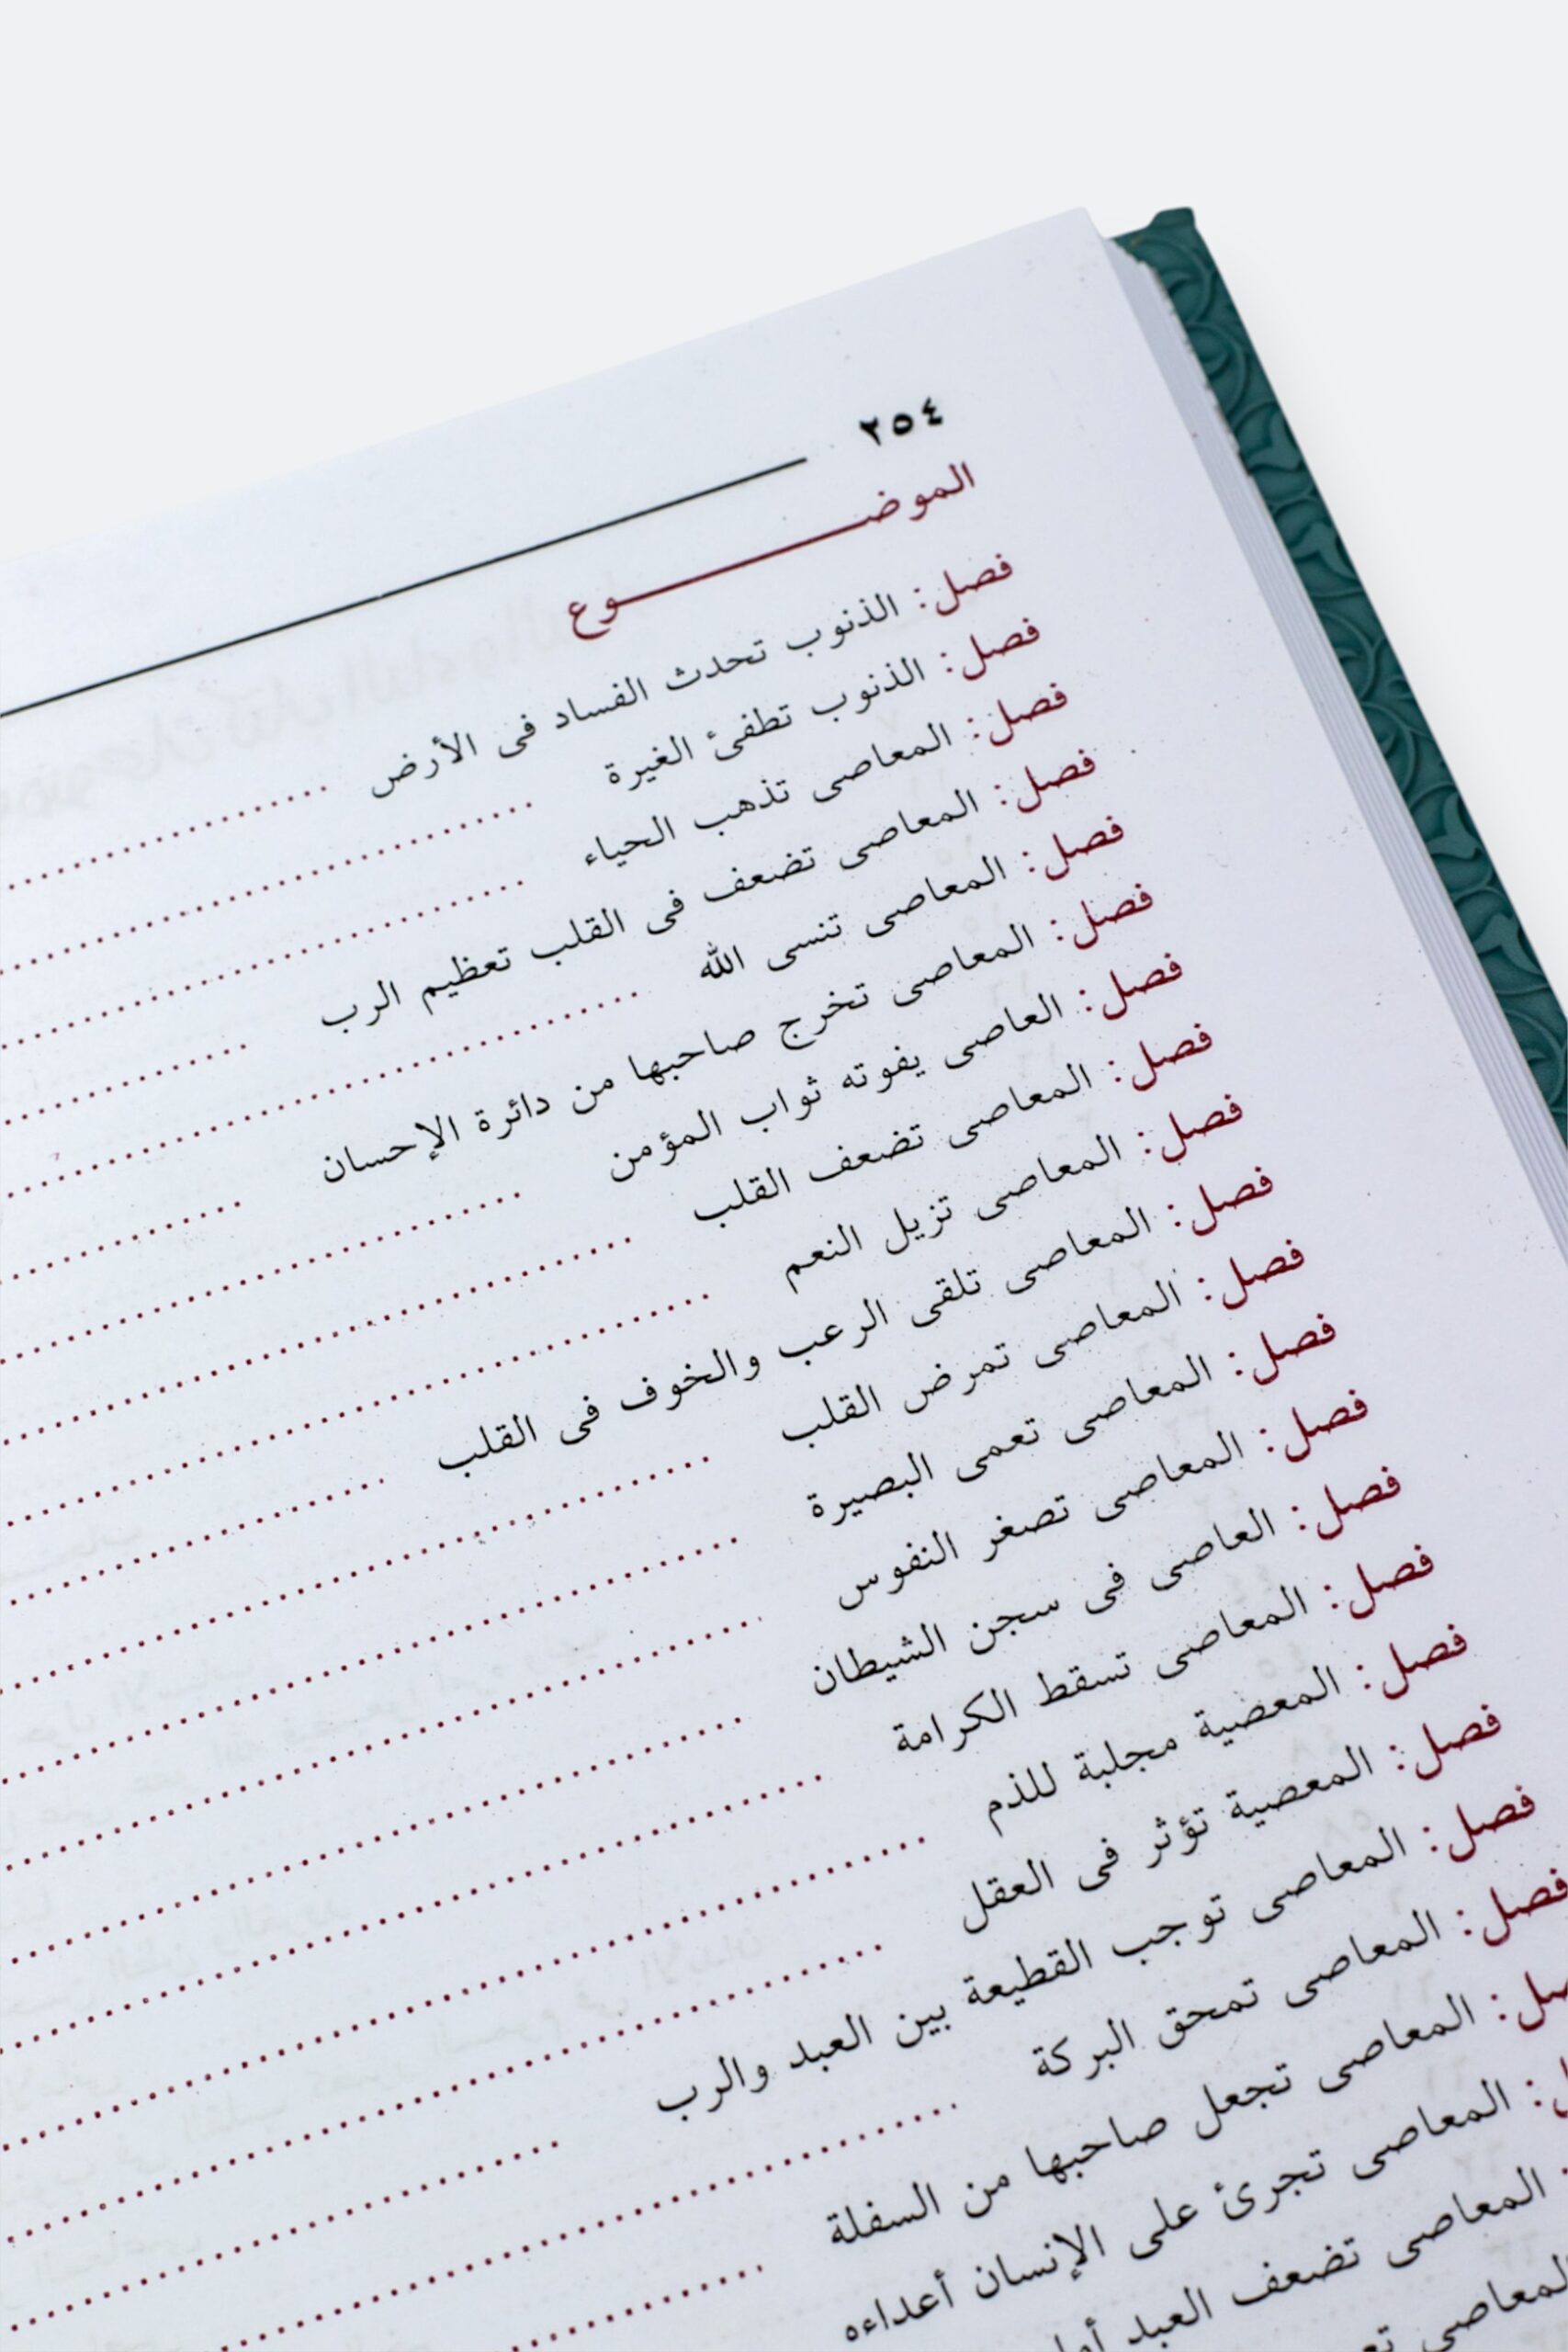 ٢٥٤
الموضـــــــوع
فصل: الذنوب تحدث الفساد فى الأرض
فصل: الذنوب تطفئ الغيرة
فصل: المعاصى تذهب الحياء
فصل: المعاصى تضعف فى القلب تعظيم الرب
فصل: المعاصى تنسى الله
فصل: المعاصى تخرج صاحبها من دائرة الإحسان
فصل: العاصى يفوته ثواب المؤمن
فصل: المعاصى تضعف القلب
فصل: المعاصى تزيل النعم
فصل: المعاصى تلقى الرعب والخوف فى القلب
فصل: المعاصى تمرض القلب
فصل: المعاصى تعمى البصيرة
فصل: المعاصى تصغر النفوس
فصل: العاصى فى سجن الشيطان
فصل: المعاصى تسقط الكرامة
فصل: المعضية مجلبة للذم
فصل: المعصية تؤثر فى العقل
فصل: المعاصى توجب القطيعة بين العبد والرب
فصل: المعاصى تمحق البركة
المعاصى تجعل صاحبها من السفلة
المعاصى تجرئ على الإنسان أعداءه
المعاصى تضعف العبد